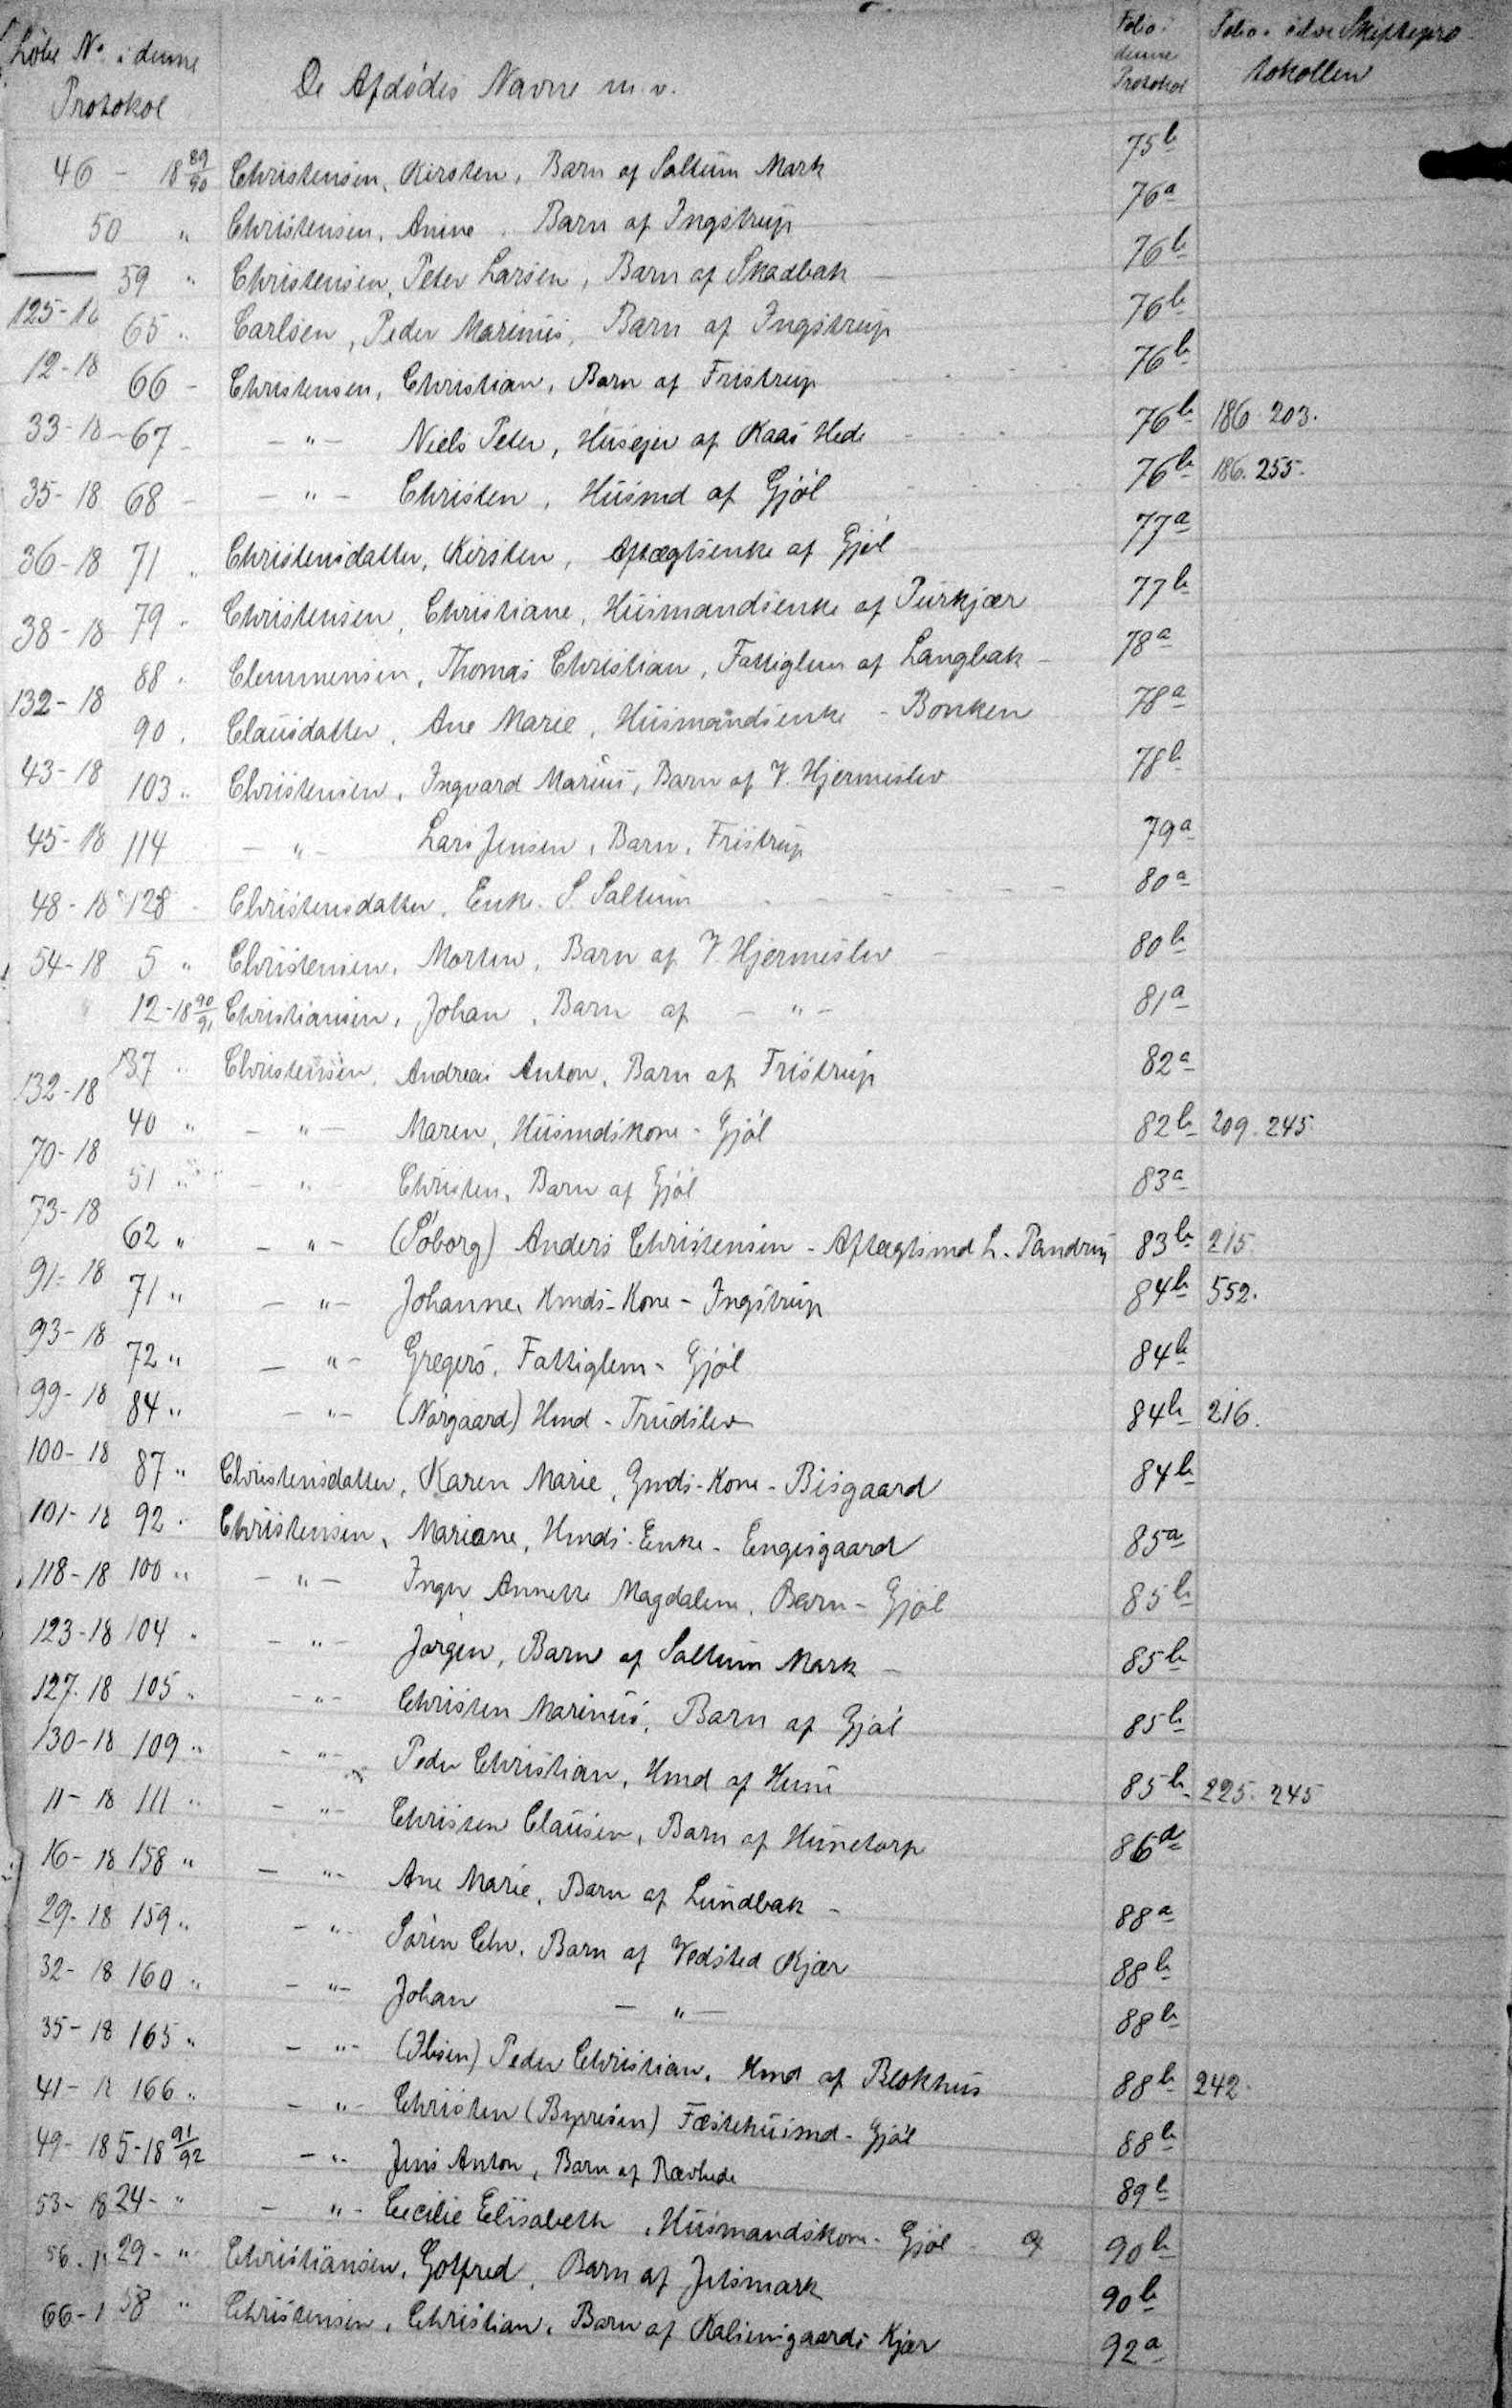 Løbe No. i denne Protokol De Afdødes Navne m.v. Folio i denne Protokol Folio i Skiftepro-
tokollen
46 - 18 89/90 Christensen, Kirsten, Barn af Saltum Mark 75b
50 " Christensen, Anine, Barn af Ingstrup 76a
59 " Christensen, Peter Larsen, Barn af Skadbak 76b
125-18 65 " Carlsen, Peder Marinus, Barn af Ingstrup 76b
12-18 66 - Christensen, Christian, Barn af Fristrup 76b
33-18 67 - - " - Niels Peter, Husejer af Kaas Hede 76b 186. 203.
35-18 68 - - " - Christen, Husmd af Gjøl 76b 186. 255.
36-18 71 " Christensdatter, Kirsten, Aftægtsenke af Gjøl 77a
38-18 79 " Christensen, Christiane, Husmandsenke af Purkjær 77b
88 " Clemmensen, Thomas Christian, Fattiglem af Langbak 78a
132-18 90 " Clausdatter, Ane Marie, Husmandsenke - Bonken 78a
43-18 103 " Christensen, Ingvard Marius, Barn af V. Hjermislev 78b
45-18 114 - " - Lars Jensen, Barn, Fristrup 79a
48-18 128 - Christensdatter, Enke. S. Saltum 80a
54-18 5 " Christensen, Morten, Barn af V. Hjermislev 80b
12-18 90/91 Christiansen, Johan, Barn af - " - 81a
132-18 37 " Christensen, Andreas Anton, Barn af Fristrup 82a
40 " - " - Maren, Husmdskone - Gjøl 82b 209. 245
70-18 51 " - " - Christen, Barn af Gjøl 83a
73-18 62 " - " - (Søborg) Anders Christensen - Aftægtsmd L. Pandrup 83b 215
91-18 71 " - " - Johanne, Hmds-Kone - Ingstrup 84b 552.
93-18 72 " - " - Gregers, Fattiglem - Gjøl 84b
99-18 84 " - " - (Nørgaard) Hmd - Trudslev 84b 216.
100-18 87 " Christensdatter, Karen Marie, Gmds-Kone - Bisgaard 84b
101-18 92 " Christensen, Mariane, Hmds-Enke - Engesgaard 85a
118-18 100 " - " - Inger Annette Magdalene, Barn - Gjøl 85b
123-18 104 " - " - Jørgen, Barn af Saltum Mark 85b
127-18 105 " - " - Christen Marinus, Barn af Gjøl 85b
130-18 109 " - " - Peder Christian, Hmd af Hune 85b 225. 245
11-18 111 " - " - Christen Clausen, Barn af Hunetorp 86a
16-18 158 " - " - Ane Marie, Barn af Lundbak 88a
29-18 159 " - " - Søren Chr. Barn af Vedsted Kjær 88b
32-18 160 " - " - Johan - " - 88b
35-18 165 " - " - (Ibsen) Peder Christian, Hmd af Blokhus 88b 242
41-18 166 " - " - Christen (Byresen) Fæstehusmd - Gjøl 88b
49-18 5-18 91/92 - " - Jens Anton, Barn af Rævhede 89b
53-18 24 - " - " - Cecilie Elisabeth, Husmandskone - Gjøl 90b
56-1 29 - " Christiansen, Gotfred, Barn af Jetsmark 90b
66-1 58 " Christensen, Christian, Barn af Kalsensgaards Kjær 92a